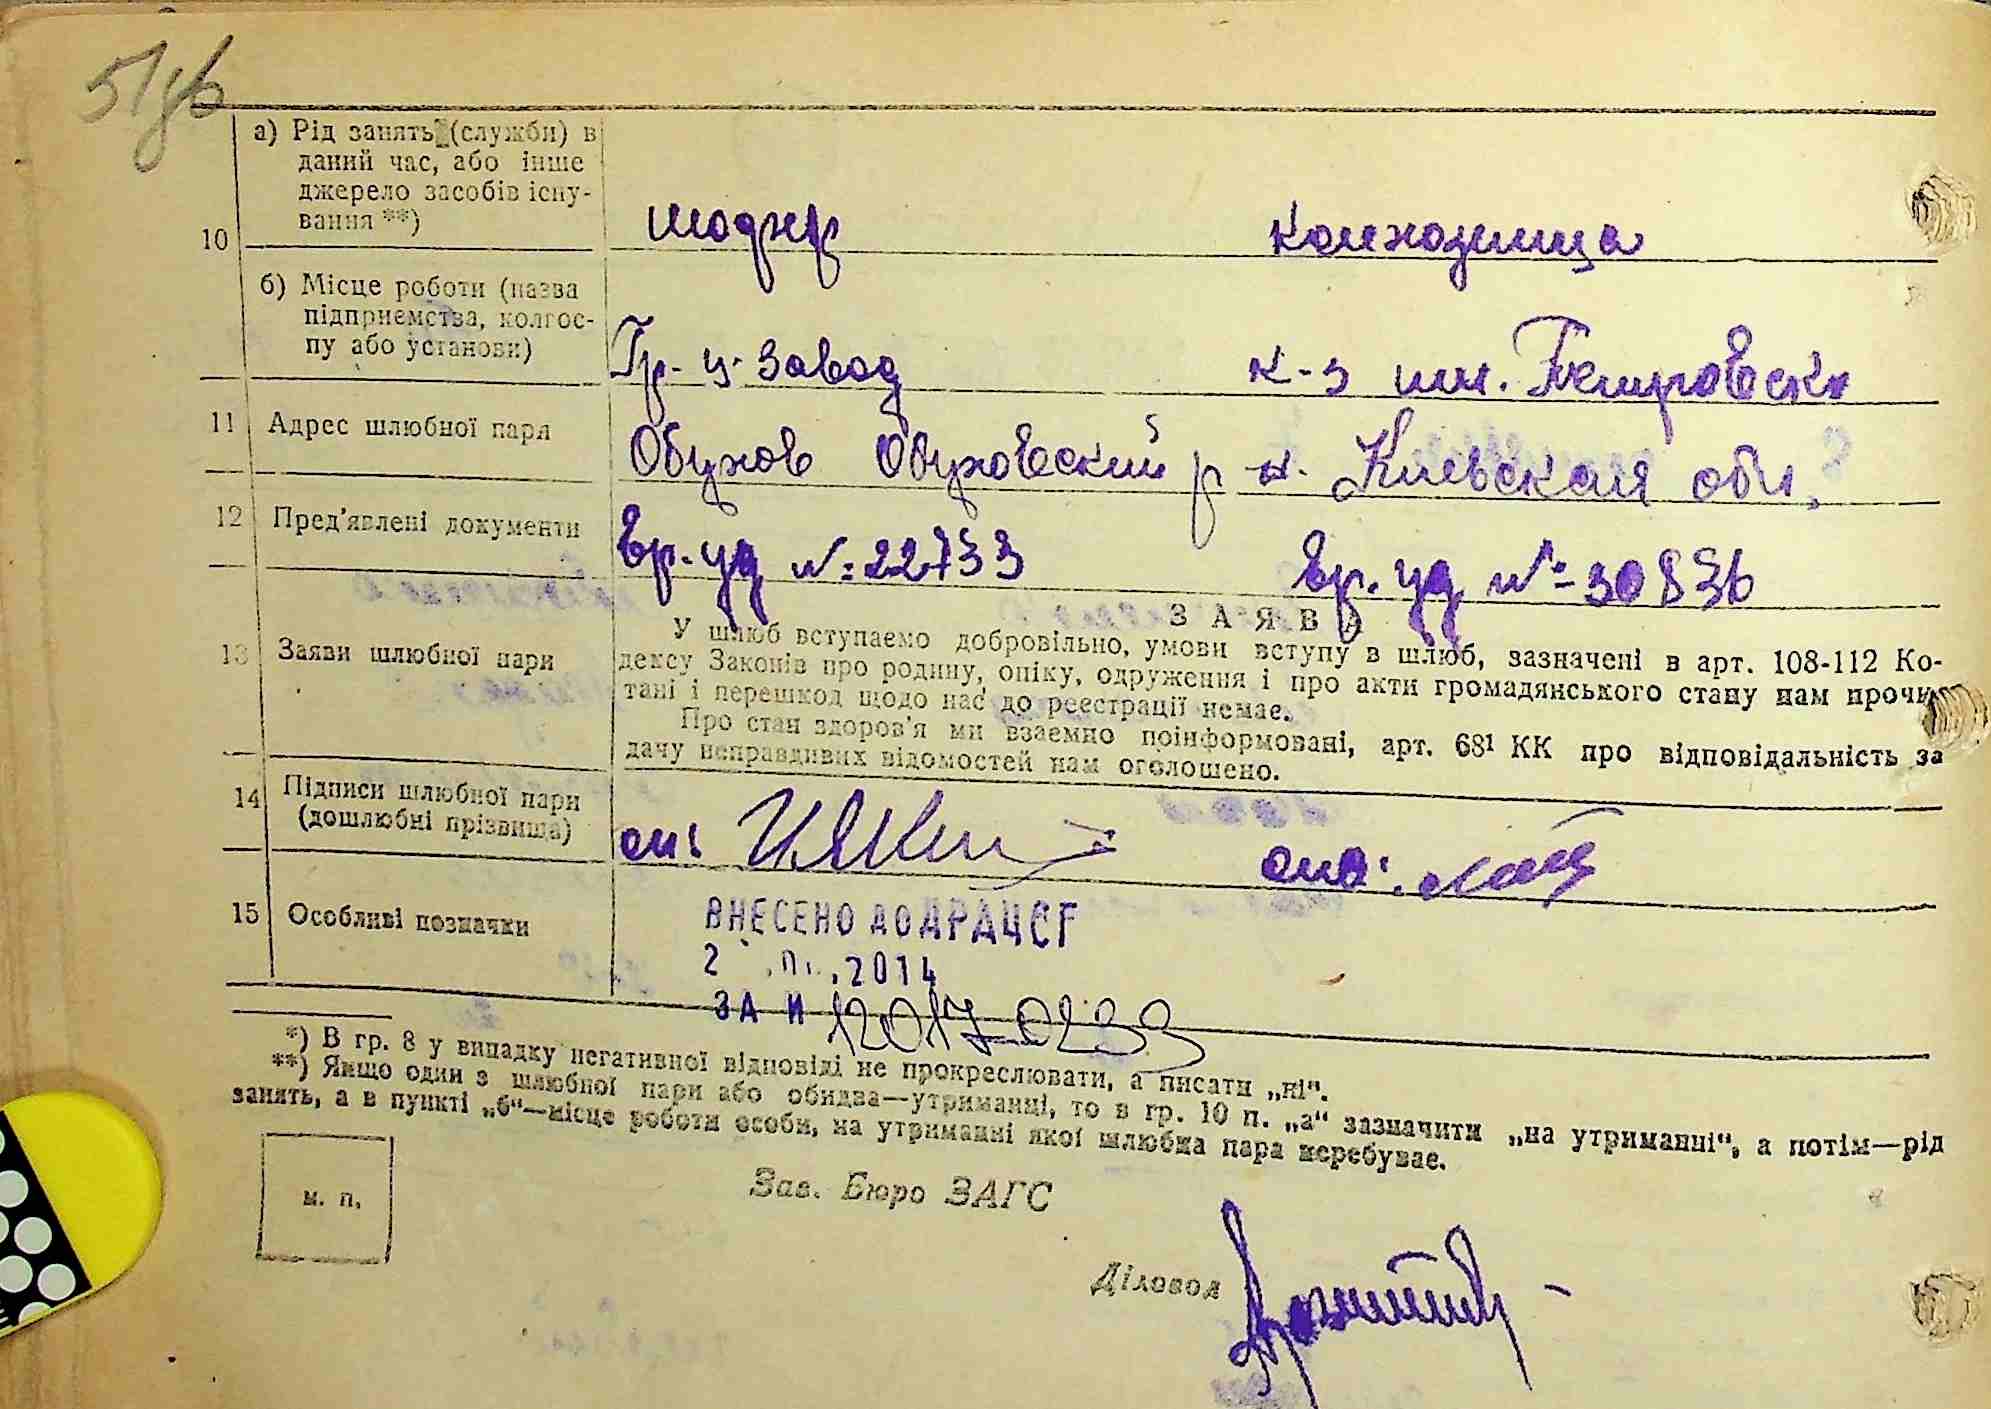 51
10
а) Рід занять (служби) в
даний час, або інше
джерело засобів існу-
вання **)
шофер
колхозница
б) Місце роботи (назва
підприємства, колгос-
пу або установи)
Гр-ц. завод
к-з им. Петровск
11 Адрес шлюбної пари
Обухов Обуховский р-н. Киевская обл,
12 Пред'явлені документи
Вр. уд №22733
Вр. уд №30836
13 Заяви шлюбної пари
ЗАЯВА
У шлюб вступаємо добровільно, умови вступу в шлюб, зазначені в арт. 108-112 Ко-
дексу Законів про родину, опіку, одруження і про акти громадянського стану нам прочи-
тані і перешкод щодо нас до реєстрації немає.
Про стан здоров'я ми взаємно поінформовані, арт. 68¹ КК про відповідальність за
дачу неправдивих відомостей нам оголошено.
14 Підписи шлюбної пари
(дошлюбні прізвища)
он:
она:
15 Особливі позначки
ВНЕСЕНО ДО ДРАЦСГ
2 2014
ЗА N 12017-0233
*) В гр. 8 у випадку негативної відповіді не прокреслювати, а писати „ні".
**) Якщо один з шлюбної пари або обидва—утриманці, то в гр. 10 п. „а" зазначити „на утриманні", а потім—рід
занять, а в пункті „б"—місце роботи особи, на утриманні якої шлюбна пара перебуває.
м. п.
Зав. Бюро ЗАГС
Діловод